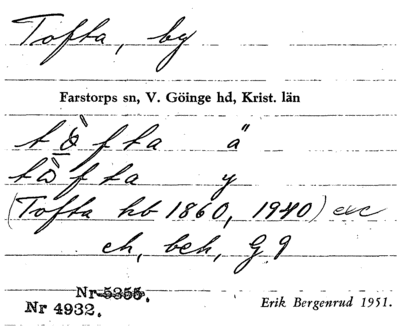 Tofta, by
Farstorps sn, V. Göinge hd, Krist. län
tòfta ä
tòfta y
(Tofta hb 1860, 1940) exc
ek, bek, G 9
Nr 5355.
Nr 4932.
Erik Bergenrud 1951.